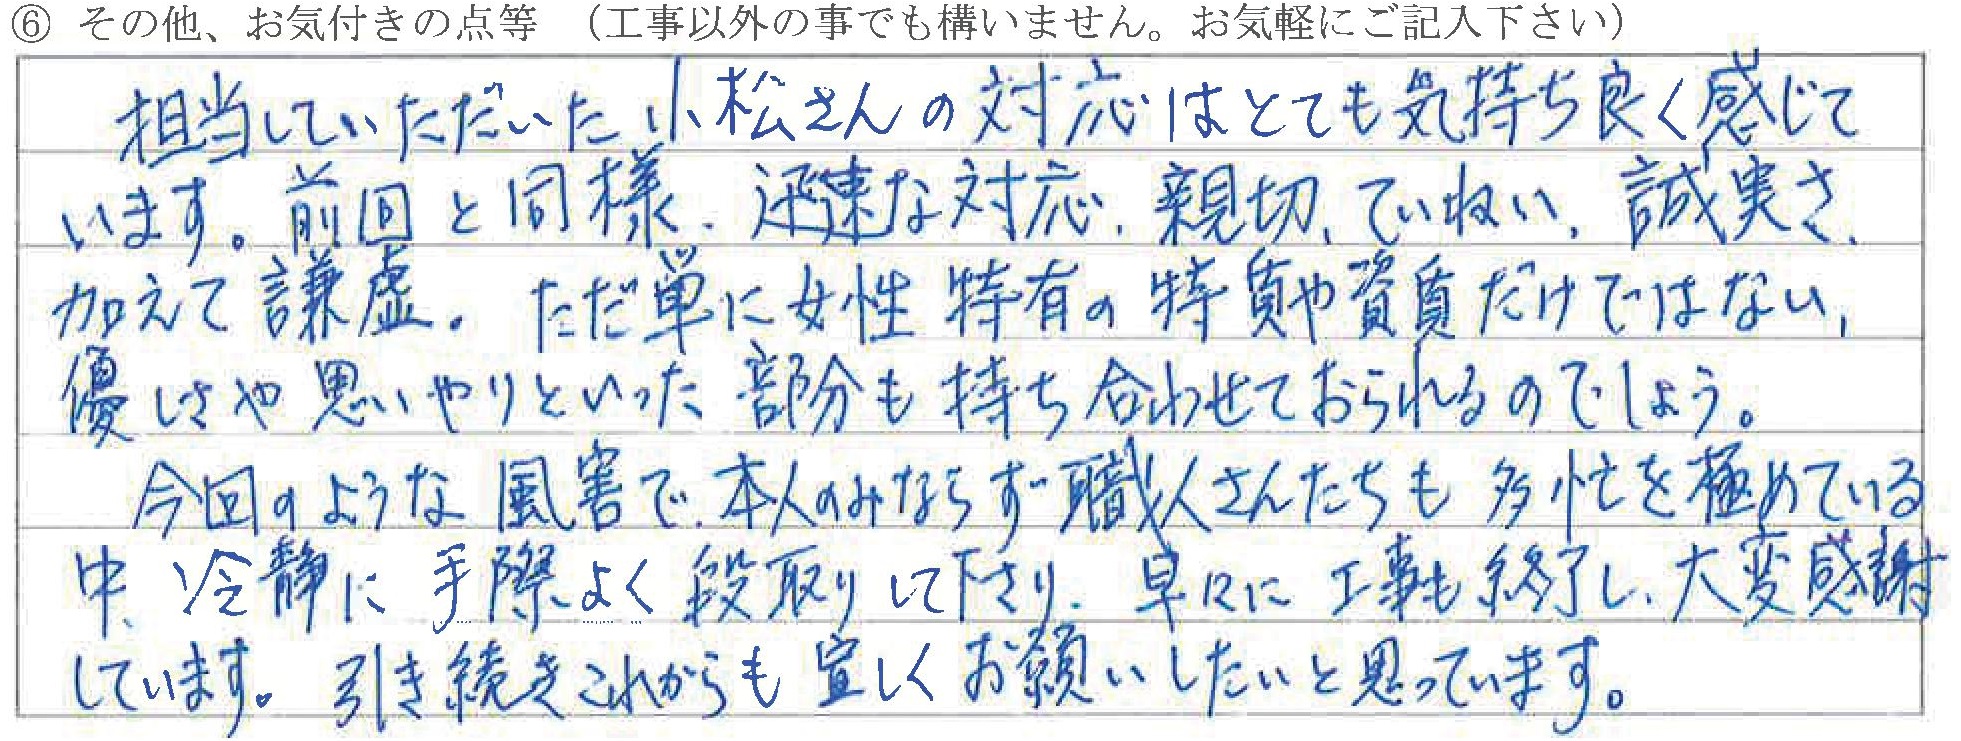 ⑥ その他、お気付きの点等 （工事以外の事でも構いません。お気軽にご記入下さい）
担当していただいた小松さんの対応はとても気持ち良く感じて
います。前回と同様、迅速な対応、親切、ていねい、誠実さ、
加えて謙虚。ただ単に女性特有の特質や資質だけではない、
優しさや思いやりといった部分も持ち合わせておられるのでしょう。
今回のような風害で、本人のみならず職人さんたちも多忙を極めている
中、冷静に手際よく段取りして下さり、早々に工事も終了し、大変感謝
しています。引き続きこれからも宜しくお願いしたいと思っています。